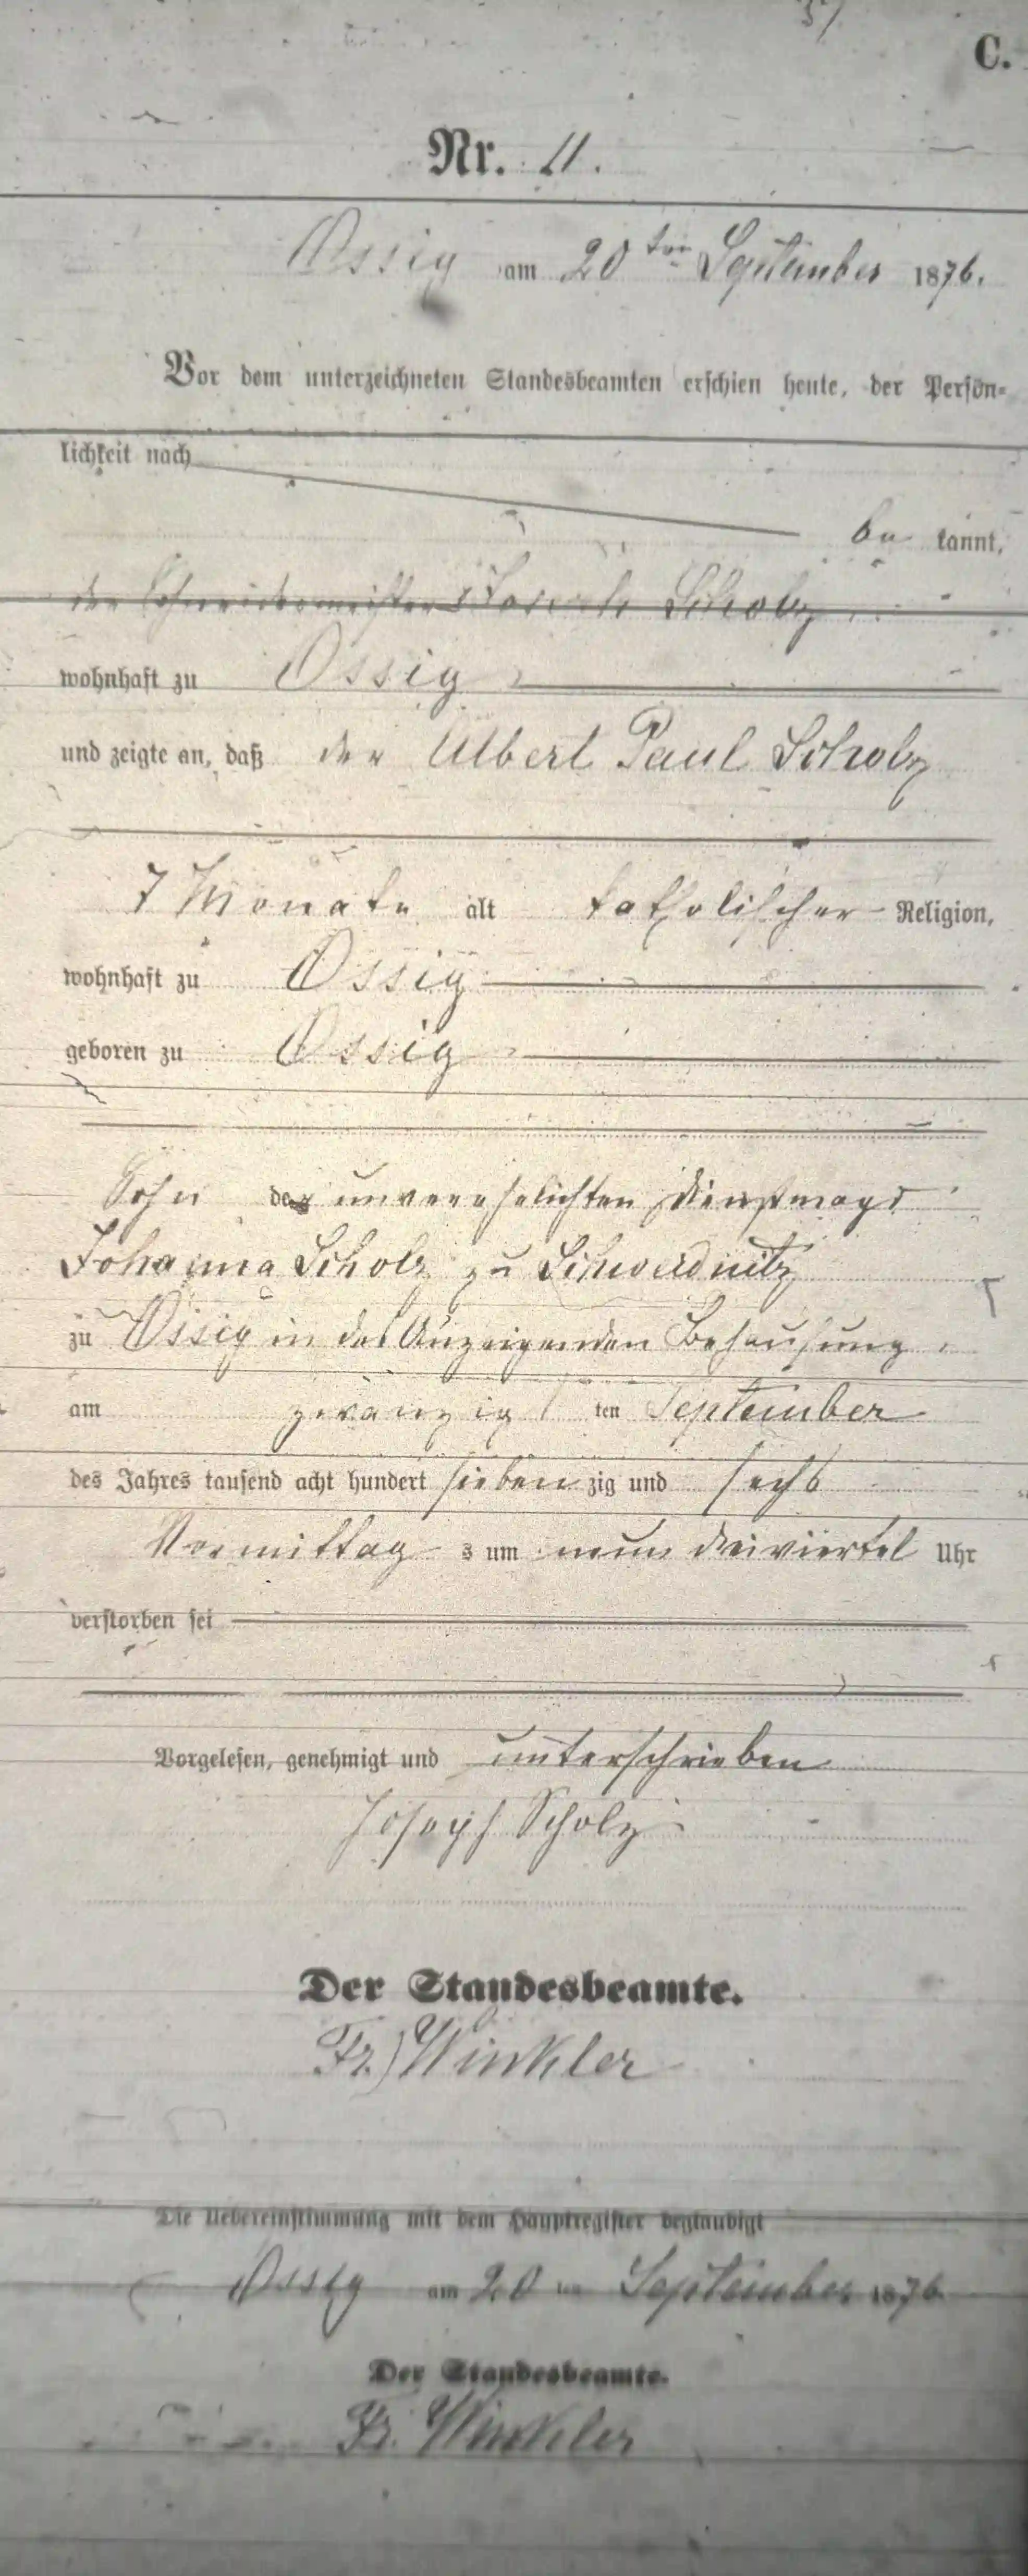 37
C.
Nr. 11.
Ossig am 20ten September 1876.
Vor dem unterzeichneten Standesbeamten erschien heute, der Persön-
lichkeit nach
be kannt,
der Schneidermeister Joseph Scholz
wohnhaft zu Ossig
und zeigte an, daß der Albert Paul Scholz
7 Monate alt katholischer Religion,
wohnhaft zu Ossig
geboren zu Ossig
Sohn der unverehelichten Dienstmagd
Johanna Scholz zu Schweidnitz
zu Ossig in des Anzeigenden Behausung
am zwanzig ten September
des Jahres tausend acht hundert sieben zig und sechs
Vormittag s um neun dreiviertel Uhr
verstorben sei
Vorgelesen, genehmigt und unterschrieben
Joseph Scholz
Der Standesbeamte.
Fr. Winkler
Die Uebereinstimmung mit dem Hauptregister beglaubigt
Ossig am 20ten September 1876
Der Standesbeamte.
Fr. Winkler